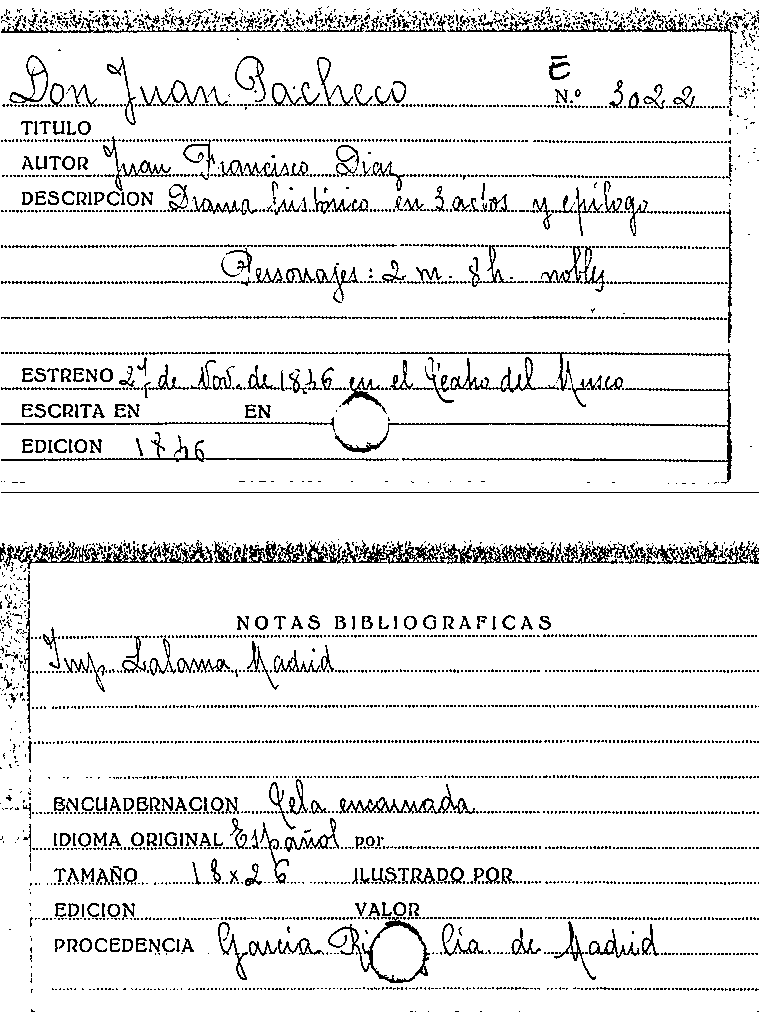 Don Juan Pacheco
E
N.º 3022
TITULO
AUTOR Juan Francisco Diaz
DESCRIPCION Drama histórico en 3 actos y epílogo
Personajes: 2 m. 8 h. nobles
ESTRENO 27 de Nov. de 1846 en el Teatro del Museo
ESCRITA EN EN
EDICION 1846
NOTAS BIBLIOGRAFICAS
Imp. Lalama, Madrid
ENCUADERNACION Tela encarnada
IDIOMA ORIGINAL Español por
TAMAÑO 18 x 26 ILUSTRADO POR
EDICION VALOR
PROCEDENCIA García Cía de Madrid